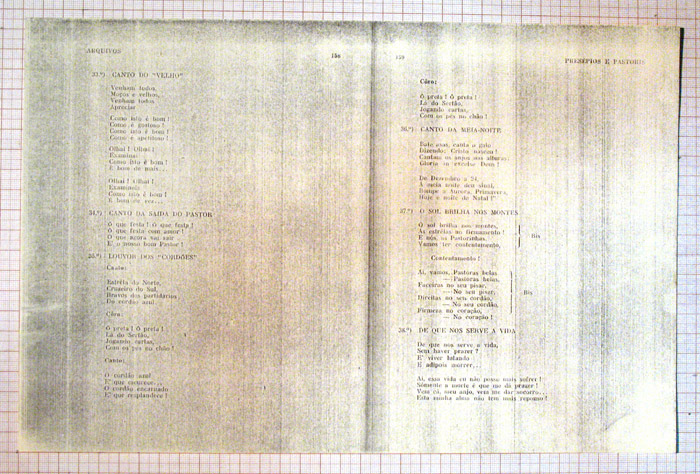 ARQUIVOS
158
33.º) CANTO DO "VELHO"
Venham todos,
Moços e velhos,
Venham todos
Apreciar
Como isto é bom!
Como é gostoso!
Como isto é bom!
Como é apetitoso!
Olhai! Olhai!
Examinai
Como isto é bom!
É bom de mais...
Olhai! Olhai!
Examinai
Como isto é bom!
É bom de ver...
34.º) CANTO DA SAÍDA DO PASTOR
Ó que festa! ó que festa!
Ó que festa com amor!
O que agora vai sair
E' o nosso bom Pastor!
35.º) LOUVOR DOS "CORDÕES"
Canto:
Estrêla do Norte,
Cruzeiro do Sul,
Bravos dos partidários
Do cordão azul.
Côro:
Ó preta! Ó preta!
Lá do Sertão,
Jogando cartas,
Com os pés no chão!
Canto:
O cordão azul
E' que escurece...
O cordão encarnado
E' que resplandece!
159
PRESÉPIOS E PASTORIS
Côro:
Ó preta! Ó preta!
Lá do Sertão,
Jogando cartas,
Com os pés no chão!
36.º) CANTO DA MEIA-NOITE
Bate asas, canta o galo
Dizendo: Cristo nasceu!
Cantam os anjos nas alturas:
Gloria in excelsis Deo!
De Dezembro a 24,
À meia noite deu sinal,
Rompe a Aurora, Primavera,
Hoje é noite de Natal!
37.º) O SOL BRILHA NOS MONTES
O sol brilha nos montes,
As estrêlas no firmamento!
E nós, as Pastorinhas,
Vamos ter contentamento,
Bis
Contentamento!
Ai, vamos, Pastoras belas
— Pastoras belas,
Faceiras no seu pisar,
— No seu pisar,
Direitas no seu cordão,
— No seu cordão,
Firmeza no coração,
— No coração!
Bis
38.º) DE QUE NOS SERVE A VIDA
De que nos serve a vida,
Sem haver prazer?
E' viver lutando
E adipois morrer...
Ai, essa vida eu não posso mais sofrer!
Sòmente a morte é que me dá prazer!
Vem cá, meu anjo, vem me dar socorro...
Esta minha alma não tem mais repouso!